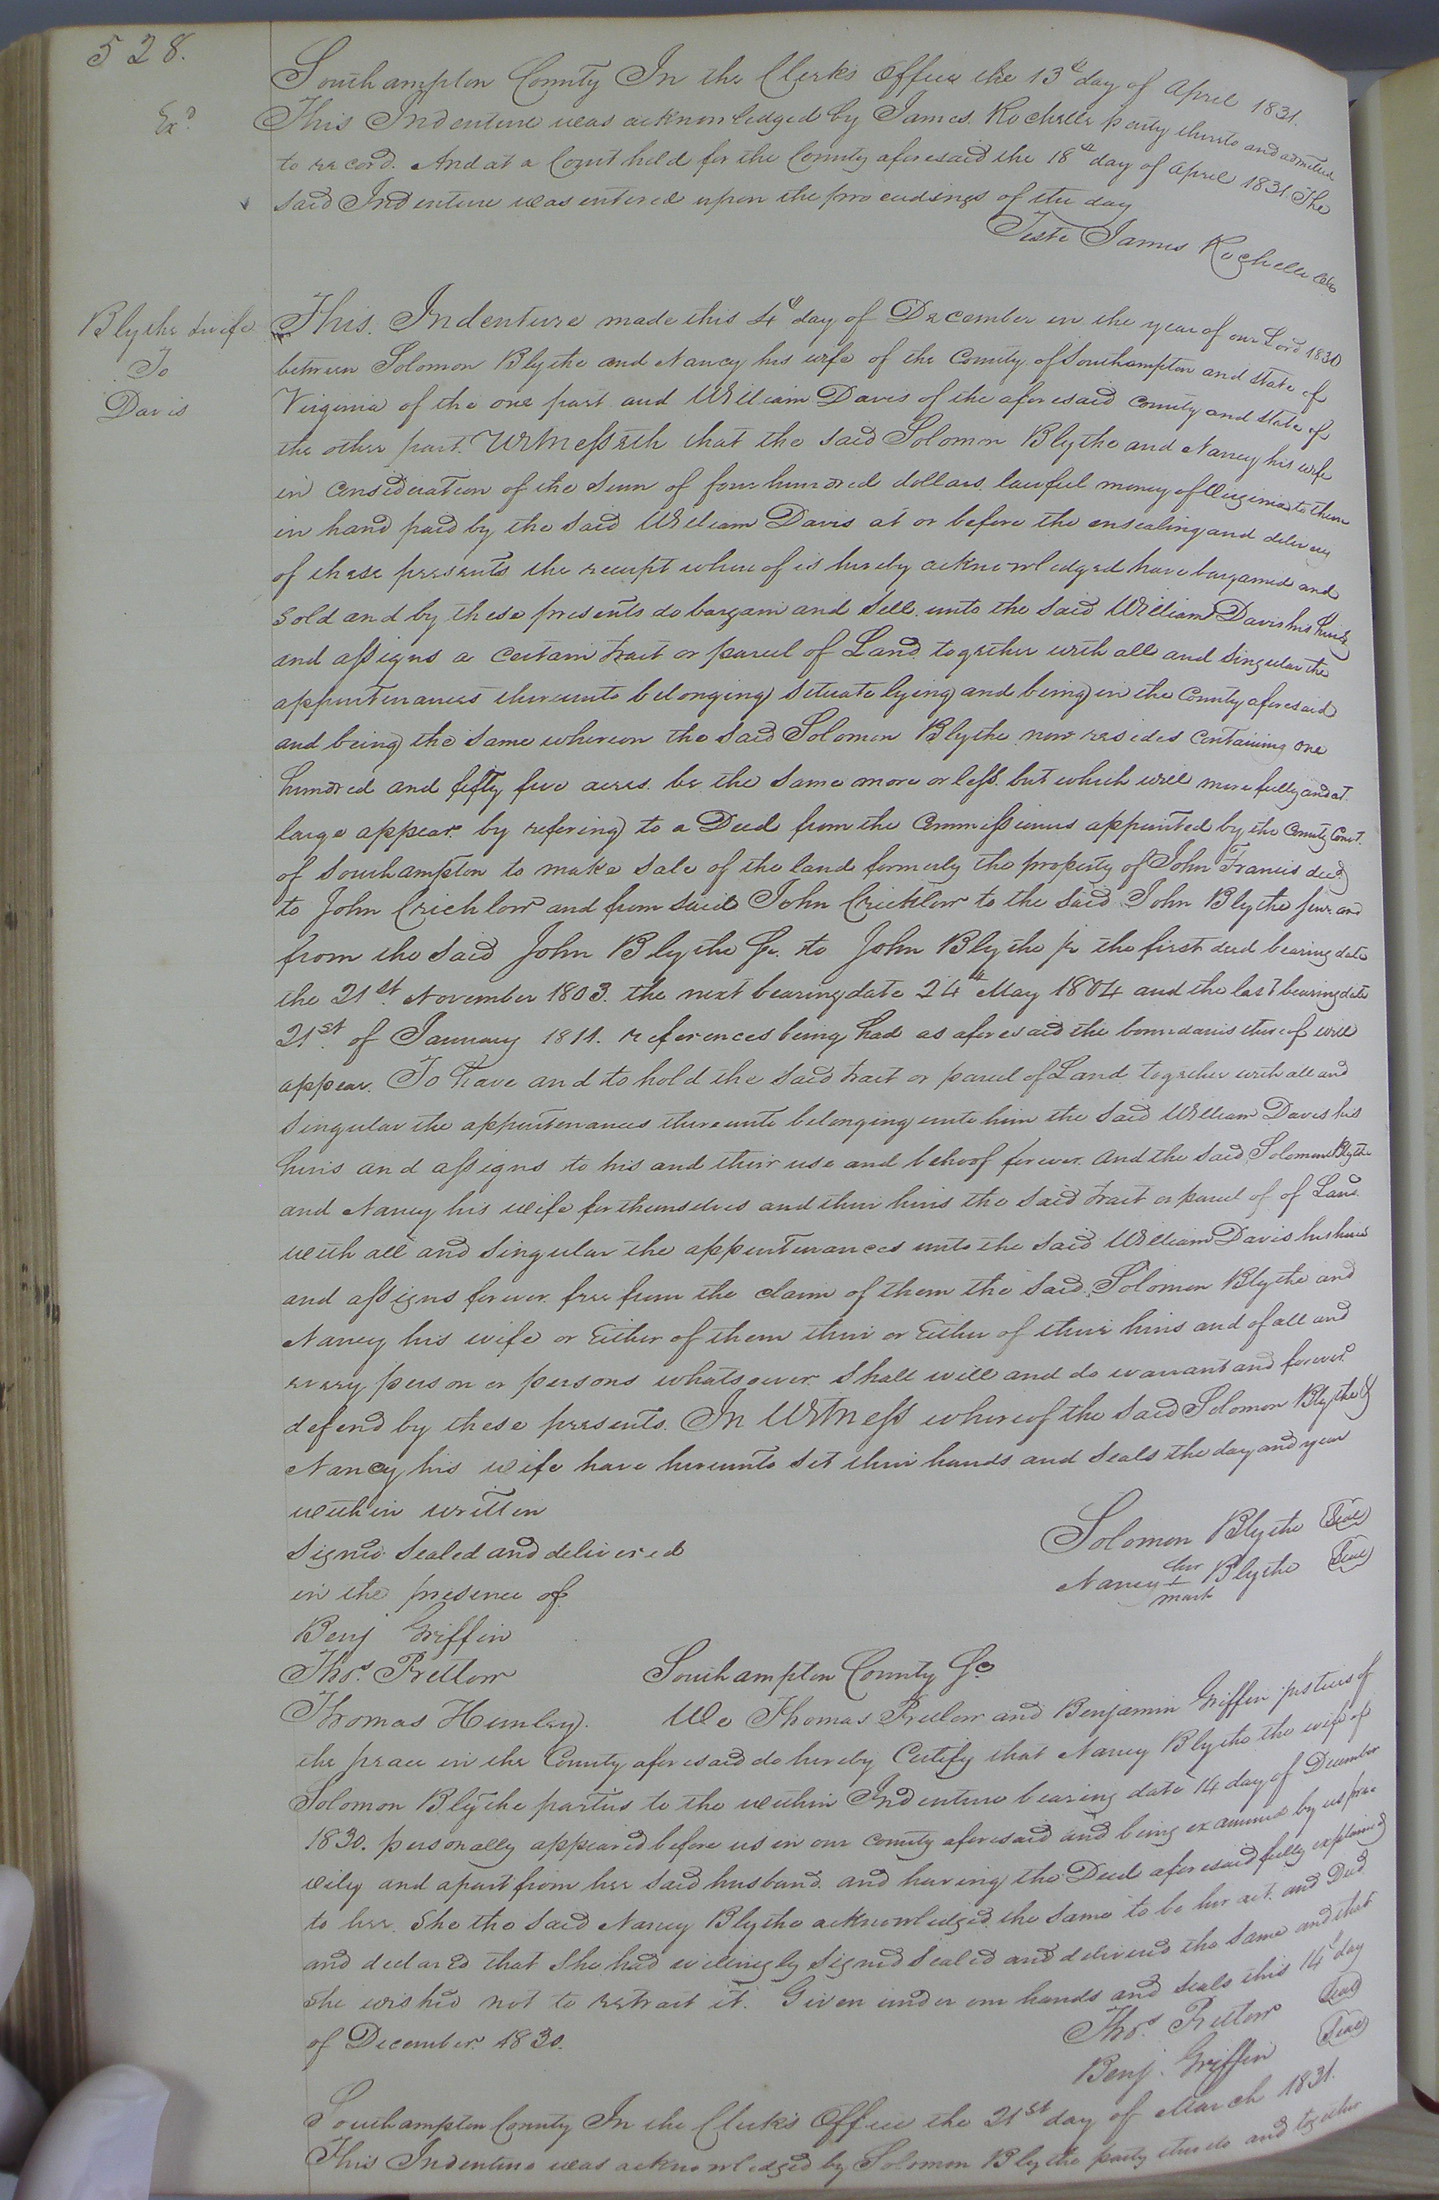 528.
Southampton County In the Clerks Office the 13th day of April 1831.
Exd
This Indenture was acknowledged by James Rochelle party thereto and admitted
to record. And at a Court held for the County aforesaid the 18th day of April 1831. The
said Indenture was entered upon the proceedings of the day
Teste James Rochelle Clk
Blythe & wife
To
Davis
This Indenture made this 4th day of December in the year of our Lord 1830
between Solomon Blythe and Nancy his wife of the County of Southampton and State of
Virginia of the one part and William Davis of the aforesaid County and State of
the other part. Witnesseth that the said Solomon Blythe and Nancy his wife
in consideration of the sum of four hundred dollars lawful money of Virginia to them
in hand paid by the said William Davis at or before the ensealing and delivery
of these presents the receipt whereof is hereby acknowledged have bargained and
sold and by these presents do bargain and sell unto the said William Davis his heirs
and assigns a certain tract or parcel of Land together with all and singular the
appurtenances thereunto belonging situate lying and being in the County aforesaid
and being the same whereon the said Solomon Blythe now resides containing one
hundred and fifty five acres be the same more or less. but which will more fully and at
large appear by refering to a Deed from the Commissioners appointed by the County Court
of Southampton to make sale of the land formerly the property of John Francis decd
to John Crichlow and from said John Cricklow to the said John Blythe senr and
from the said John Blythe Sr. to John Blythe jr the first deed bearing date
the 21st. November 1803. the next bearing date 24th May 1804 and the last bearing date
21st. of January 1811. references being had as aforesaid the boundaries thereof will
appear. To have and to hold the said tract or parcel of Land together with all and
singular the appurtenances thereunto belonging unto him the said William Davis his
heirs and assigns to his and their use and behoof forever. And the said Solomon Blythe
and Nancy his wife for themselves and their heirs the said tract or parcel of of Land
with all and singular the appurtenances unto the said William Davis his heirs
and assigns forever free from the claim of them the said Solomon Blythe and
Nancy his wife or Either of them their or Either of their heirs and of all and
every person or persons whatsoever shall will and do warrant and forever
defend by these presents. In Witness whereof the said Solomon Blythe &
Nancy his wife have hereunto set their hands and seals the day and year
within written
Signed Sealed and delivered
in the presence of
Benj Griffin
Thos. Pretlow
Solomon Blythe Seal
her
Nancy + Blythe Seal
mark
Southampton County Sc
Thomas Hunley. We Thomas Pretlow and Benjamin Griffin justices of
the peace in the County aforesaid do hereby Certify that Nancy Blythe the wife of
Solomon Blythe parties to the within Indenture bearing date 14 day of December
1830. personally appeared before us in our County aforesaid and being examined by us priv
vily and apart from her said husband and having the Deed aforesaid fully explained
to her. She the said Nancy Blythe acknowledged the same to be her act and Deed
and declared that she had willingly signed sealed and delivered the same and that
she wished not to retract it. Given under our hands and seals this 14th day
of December 1830.
Thos. Pretlow Seal
Benj. Griffin Seal
Southampton County In the Clerks Office the 21st day of March 1831.
This Indenture was acknowledged by Solomon Blythe party thereto and together